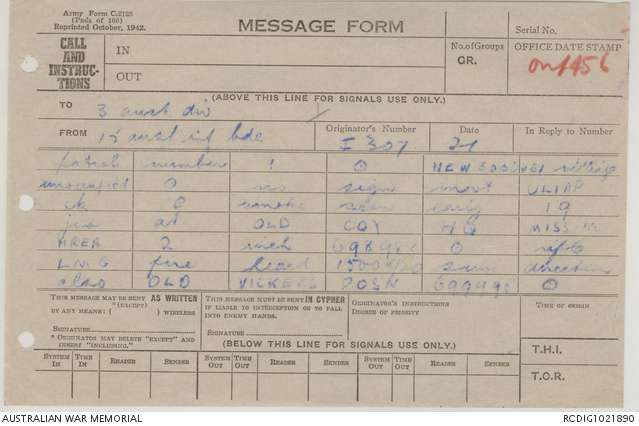 Army Form C.2128
(Pads of 100)
Reprinted October, 1942.
MESSAGE FORM
Serial No.
CALL
AND
INSTRUC-
TIONS
IN
OUT
No. of Groups
GR.
OFFICE DATE STAMP
(ABOVE THIS LINE FOR SIGNALS USE ONLY.)
TO 3 aust div
FROM 15 aust inf bde
Originator's Number
I 307
Date
21
In Reply to Number
patrol number 1 O village
unoccupied O no sign
ck O smoke seen early 19
OLD COY HQ MISSIM
AREA 2 O
LMG fire heard same direction
also OLD VICKERS POSN O
THIS MESSAGE MAY BE SENT AS WRITTEN
(EXCEPT)
BY ANY MEANS ( ) WIRELESS
SIGNATURE
* ORIGINATOR MAY DELETE "EXCEPT" AND
INSERT "INCLUDING."
THIS MESSAGE MUST BE SENT IN CYPHER
IF LIABLE TO INTERCEPTION OR TO FALL
INTO ENEMY HANDS.
SIGNATURE
ORIGINATOR'S INSTRUCTIONS
DEGREE OF PRIORITY
TIME OF ORIGIN
(BELOW THIS LINE FOR SIGNALS USE ONLY.)
T.H.I.
T.O.R.
SYSTEM IN TIME IN READER SENDER SYSTEM OUT TIME OUT READER SENDER SYSTEM OUT TIME OUT READER SENDER
AUSTRALIAN WAR MEMORIAL
RCDIG1021890